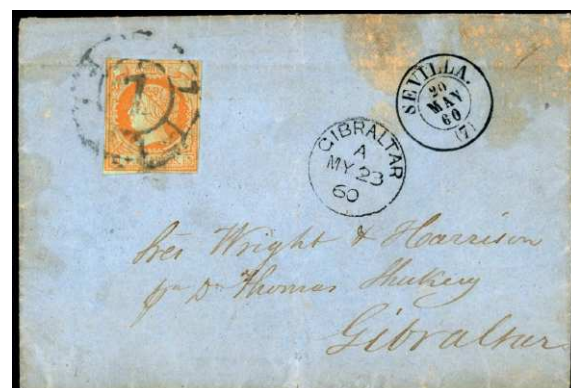 7
SEVILLA.
20
MAY
60
(7)
GIBRALTAR
A
MY 23
60
Sres Wright & Harrison
pr Dn Thomas
Gibraltar